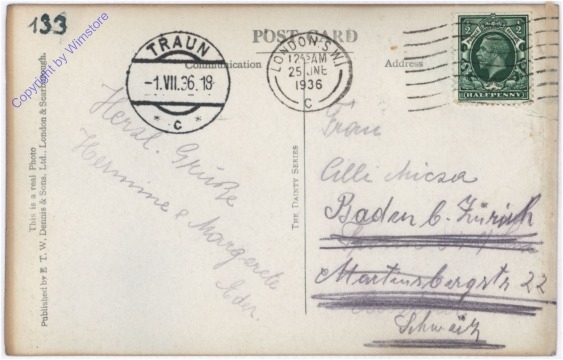 133
Copyright by Wimstore
POST CARD
Communication
Address
TRAUN
-1.VII.36.18
* C *
LONDON. S.W.1
25 JNE
1936
C
HALFPENNY
Herzl. Grüße
Hermine & Margarete
Eder.
THE DAINTY SERIES
This is a real Photo
Published by E. T. W. Dennis & Sons, Ltd., London & Scarborough.
Frau
Cilli
Baden b. Zürich
Martinsbergstr 22
Schweiz